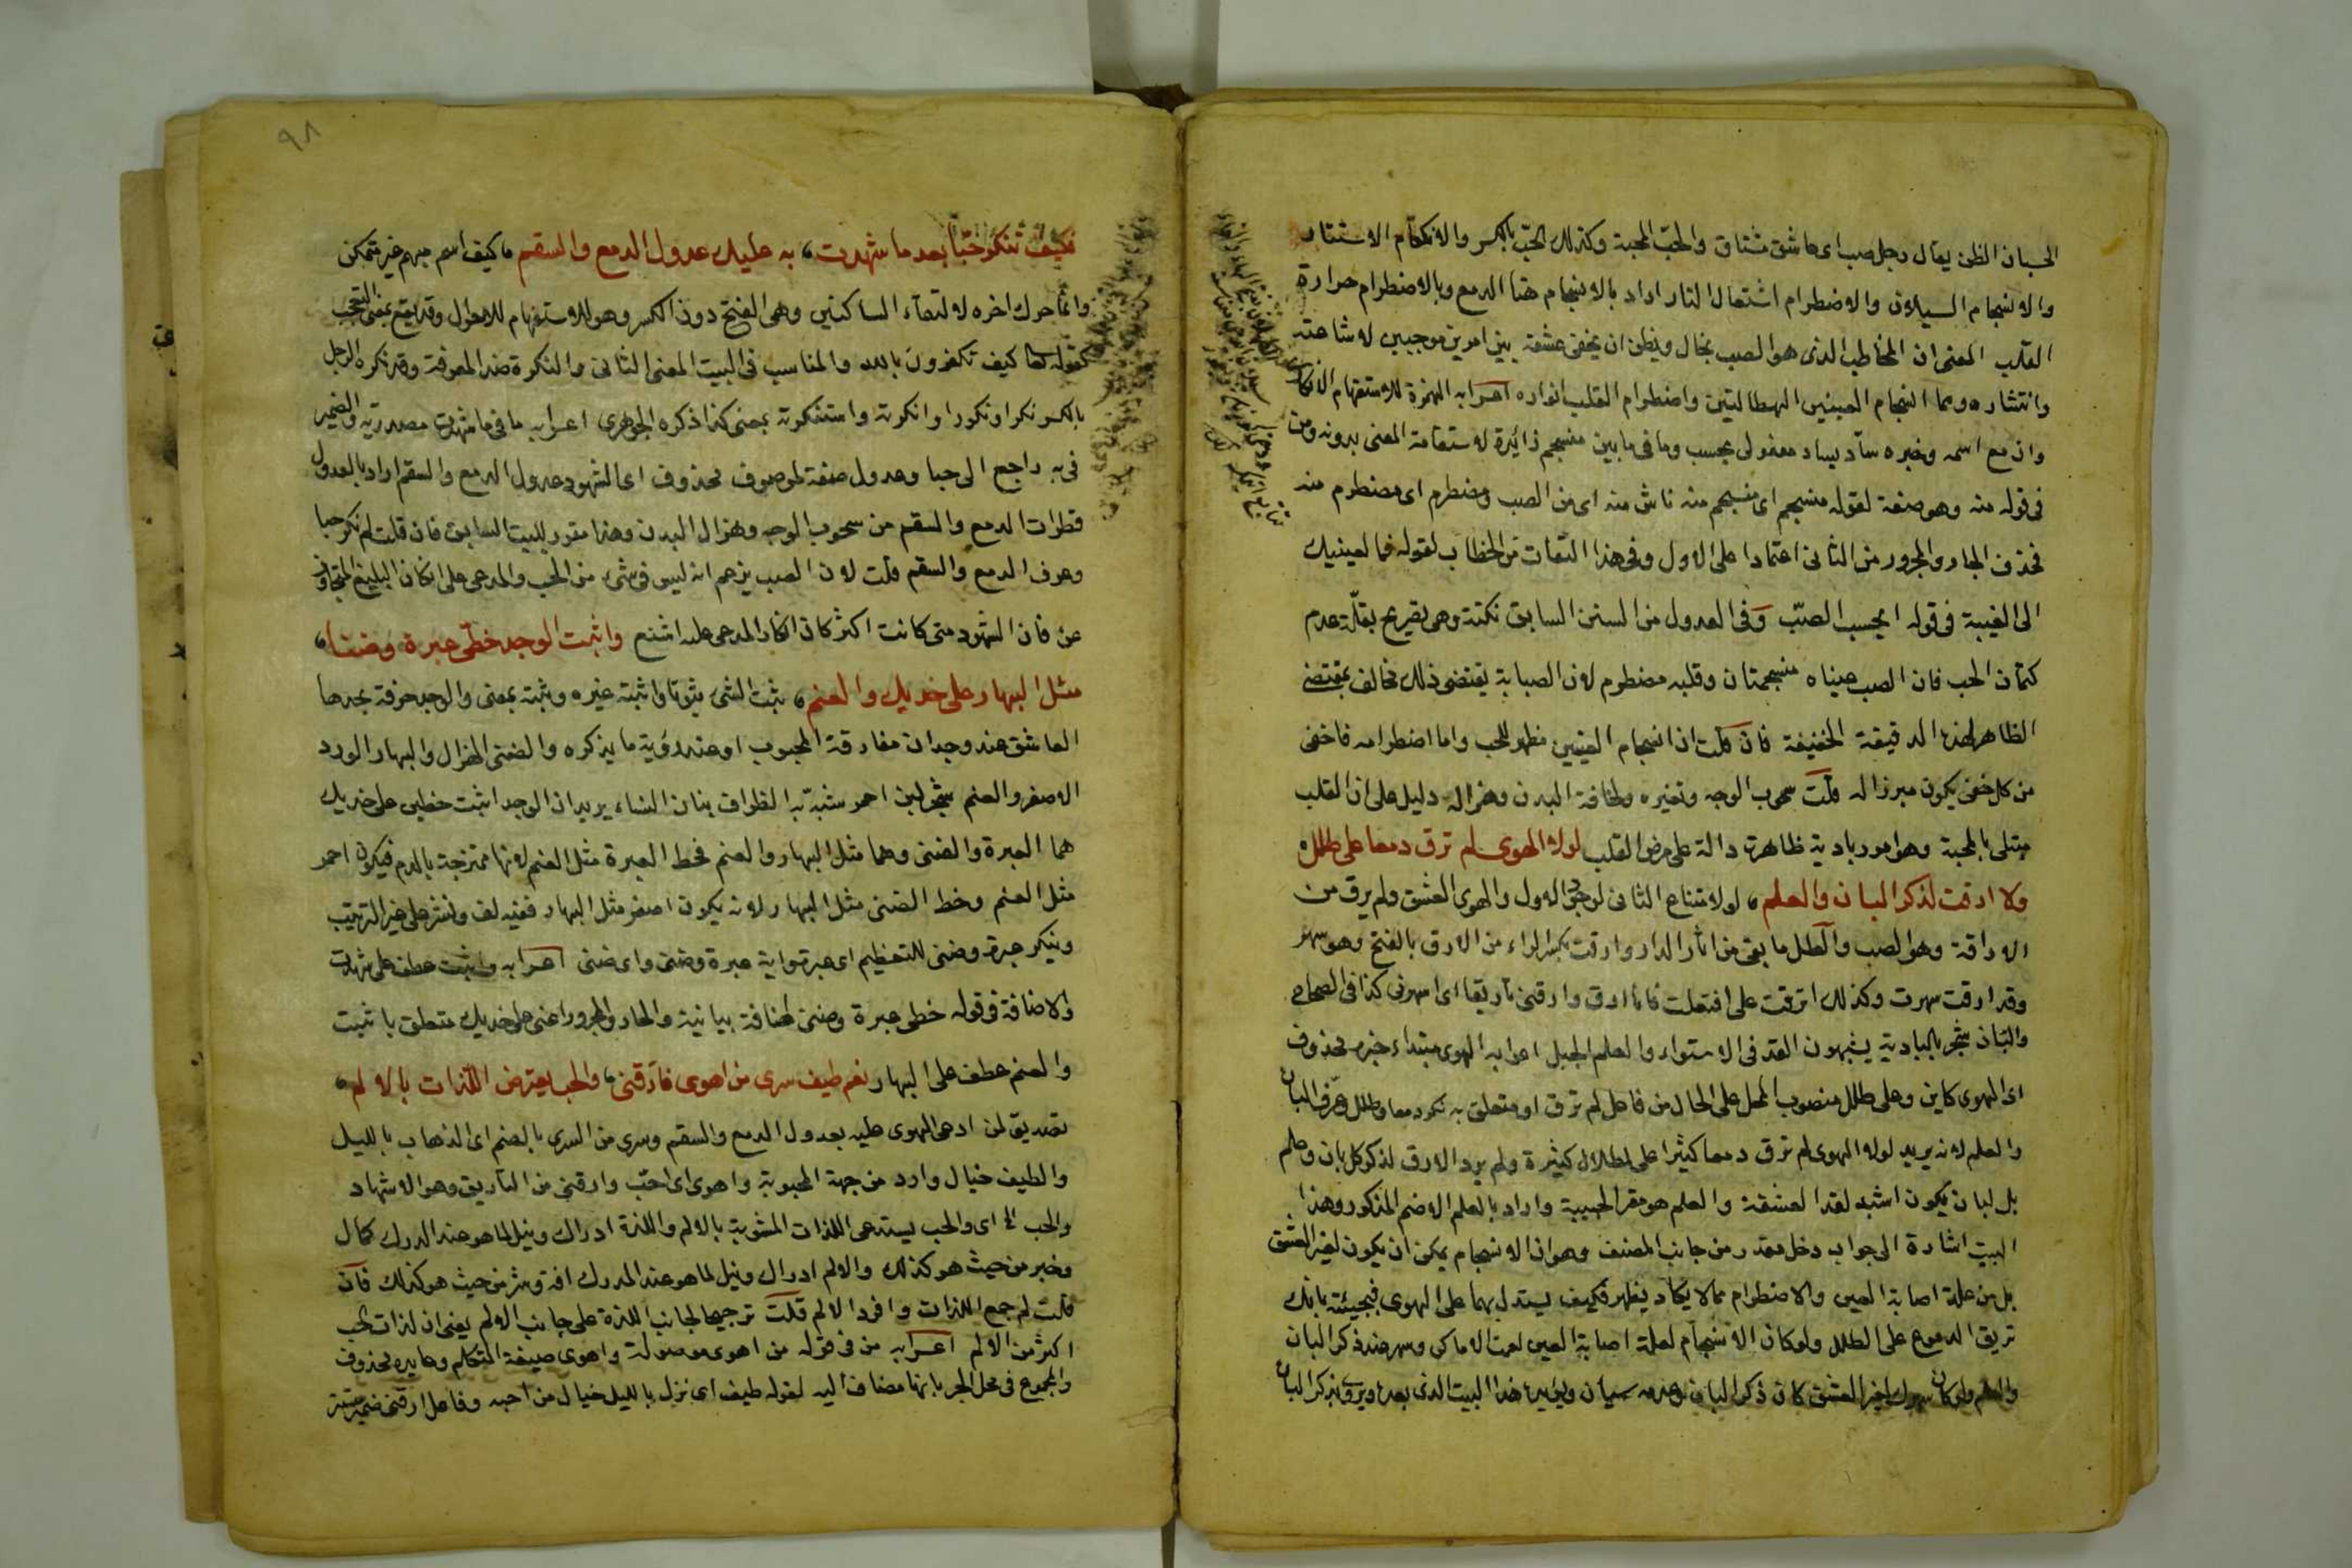 الحسبان الظن يقال رجل صب اى عاشق مشتاق والحب المحبة وكذلك الحب بالكسر والانكتام الاستتار
والانسجام السيلان والاضطرام اشتعال النار اراد بالانسجام هنا الدمع وبالاضطرام حرارة
القلب المعنى ان المخاطب الذى هو الصب يخال ويظن ان يخفى عشقه بين امرين موجبين لاشاعته
وانتشاره وهما انسجام العينين الهطالتين واضطرام القلب انواره اعرابه الهمزة للاستفهام الانكار
وان مع اسمه وخبره سآد يساد مفعولى يحسب وما فى ما بين منسجم زائدة لاستقامة المعنى بدونه ومن
فى قوله منه وهو صفة لقوله منسجم اى منسجم منه ناش منه اى من الصب ومضطرم اى مضطرم منه
فحذف الجار والمجرور من الثانى اعتمادا على الاول وفى هذا التفات من الخطاب لقوله فما لعينيك
الى الغيبة فى قوله ايحسب الصب وفى العدول من السنن السابق نكتة وهى تقريع بقلة عدم
كتمان الحب فان الصب عيناه منسجمتان وقلبه مضطرم لان الصبابة يقتضى ذلك فخالف بمقتضى
الظاهر لهذه الدقيقة الخفيفة فان قلت ان انسجام العينين مظهر للحب واما اضطرامه فاخفى
من كل خفى يكون مبرزا له قلت سحوب الوجه وتغيره ولخافة البدن وهزاله دليل على ان القلب
مبتلى بالمحبة وهو امور بادية ظاهرة دالة على مرض القلب لولا الهوى لم ترق دمعا على طلل
ولا ارقت لذكر البان والعلم لولا متناع الثانى لوجود الاول والهوى العشق ولم يرق من
الاراقة وهو الصب والطلل ما بقى من اثار الدار وارقت بكسر الراء من الارق بالفتح وهو سهر
وقد ارقت سهرت وكذلك اترقت على افتعلت فانا ارق وارقنى تأريقا اى اسهرنى كذا فى الصحاح
والبان شجر بالبادية يشبهون القد فى الاستواء والعلم الجبل اعرابه الهوى مبتداء خبره محذوف
اى الهوى كاين وعلى طلل منصوب المحل على الحال من فاعل لم ترق او متعلق به نكر دمعا وطلل وعرف البان
والعلم لانه يريد لولا الهوى لم ترق دمعا كثيرا على اطلال كثيرة ولم يرد الارق لذكر كل بان وعلم
بل لبان يكون اشبه لقد العشقة والعلم هو مقر الحبيبة واراد بالعلم الاضم المذكور وهذا
البيت اشارة الى جواب دخل مقدر من جانب المصنف وهو ان الانسجام يمكن ان يكون لغير العشق
بل من علة اصابة العين والاضطرام مما لا يكاد يظهر فكيف يستدل بهما على الهوى فيجيئه بانك
تريق الدموع على الطلل ولو كان الانسجام لعلة اصابة العين لعمت الاماكن وسهر عند ذكر البان
والعلم ولو كان سهرك لغير العشق كان ذكر البان وعدمه سيان ويؤيد هذا البيت الذى بعده ويروى بذكر البان
٩٨
فكيف تنكر حبا بعد ما شهدت به عليك عدول الدمع والسقم كيف اسم مبهم غير متمكن
وانما حرك اخره لالتقاء الساكنين وهى الفتح دون الكسر وهو للاستفهام للاحوال وقد يقع بمعنى التعجب
كقوله تعا كيف تكفرون بالله والمناسب فى البيت المعنى الثانى والنكرة ضد المعرفة وقد نكره الرجل
بالكسر نكرا ونكورا وانكرته واستنكرته بمعنى كذا ذكره الجوهرى اعرابه ما فى ما شهدت مصدرية والضمير
فى به راجع الى حبا وعدول صفة لموصوف محذوف اى الشهود عدول الدمع والسقم اراد بالعدول
قطرات الدمع والسقم من سحوب الوجه وهزال البدن وهذا مقرر للبيت السابق فان قلت لم نكر حبا
وعرف الدمع والسقم قلت لان الصب يزعم انه ليس فى شئ من الحب والمدعى على انكار البليغ المتجاوز
عن فان الشهود متى كانت اكثر كان انكار المدعى عليه اشنع واثبت الوجد خطى عبرة وضنا
مثل البهار على خديك والعنم ثبت الشئ ثبوتا واثبته غيره وثبته بمعنى والوجد حرقة يجدها
العاشق عند وجدان مفارقة المحبوب او عند رؤية ما يذكره والضنى الهزال والبهار الورد
الاصفر والعنم شجر لين احمر يشبه به اطراف بنان النساء يريد ان الوجد اثبت خطين على خديك
هما العبرة والضنى وهما مثل البهار والعنم فخط العبرة مثل العنم لانها ممتزجة بالدم فيكون احمر
مثل العنم وخط الضنى مثل البهار لانه يكون اصفر مثل البهار ففيه لف ونشر على غير الترتيب
وينكر عبرة وضنى للتعظيم اى عبرة واية عبرة وضنى واى ضنى اعرابه واثبت عطف على شهدت
والاضافة فى قوله خطى عبرة وضنى اضافة بيانية والجار والمجرور اعنى على خديك متعلق باثبت
والعنم عطف على البهار نعم طيف سرى من اهوى فارقنى والحب يعترض اللذات بالالم
تصديق لمن ادعى الهوى عليه بعدول الدمع والسقم وسرى من السرى بالضم اى الذهاب بالليل
والطيف خيال وارد من جهة المحبوبة واهوى اى احب وارقنى من التأريق وهو الاسهاد
والحب الخ اى والحب يستدعى اللذات المشوبة بالالم واللذة ادراك ونيل لما هو عند المدرك كمال
وخير من حيث هو كذلك والالم ادراك ونيل لما هو عند المدرك افة وشر من حيث هو كذلك فان
قلت لم جمع اللذات وافرد الالم قلت ترجيحا لجانب اللذة على جانب الالم يعنى ان لذات الحب
اكثر من الالم اعرابه من فى قوله من اهوى موصولة واهوى صيغة المتكلم وعايده محذوف
والمجموع فى محل الجر بانها مضاف اليه لقوله طيف اى نزل بالليل خيال من احبه وفاعل ارقنى ضمير مستتر